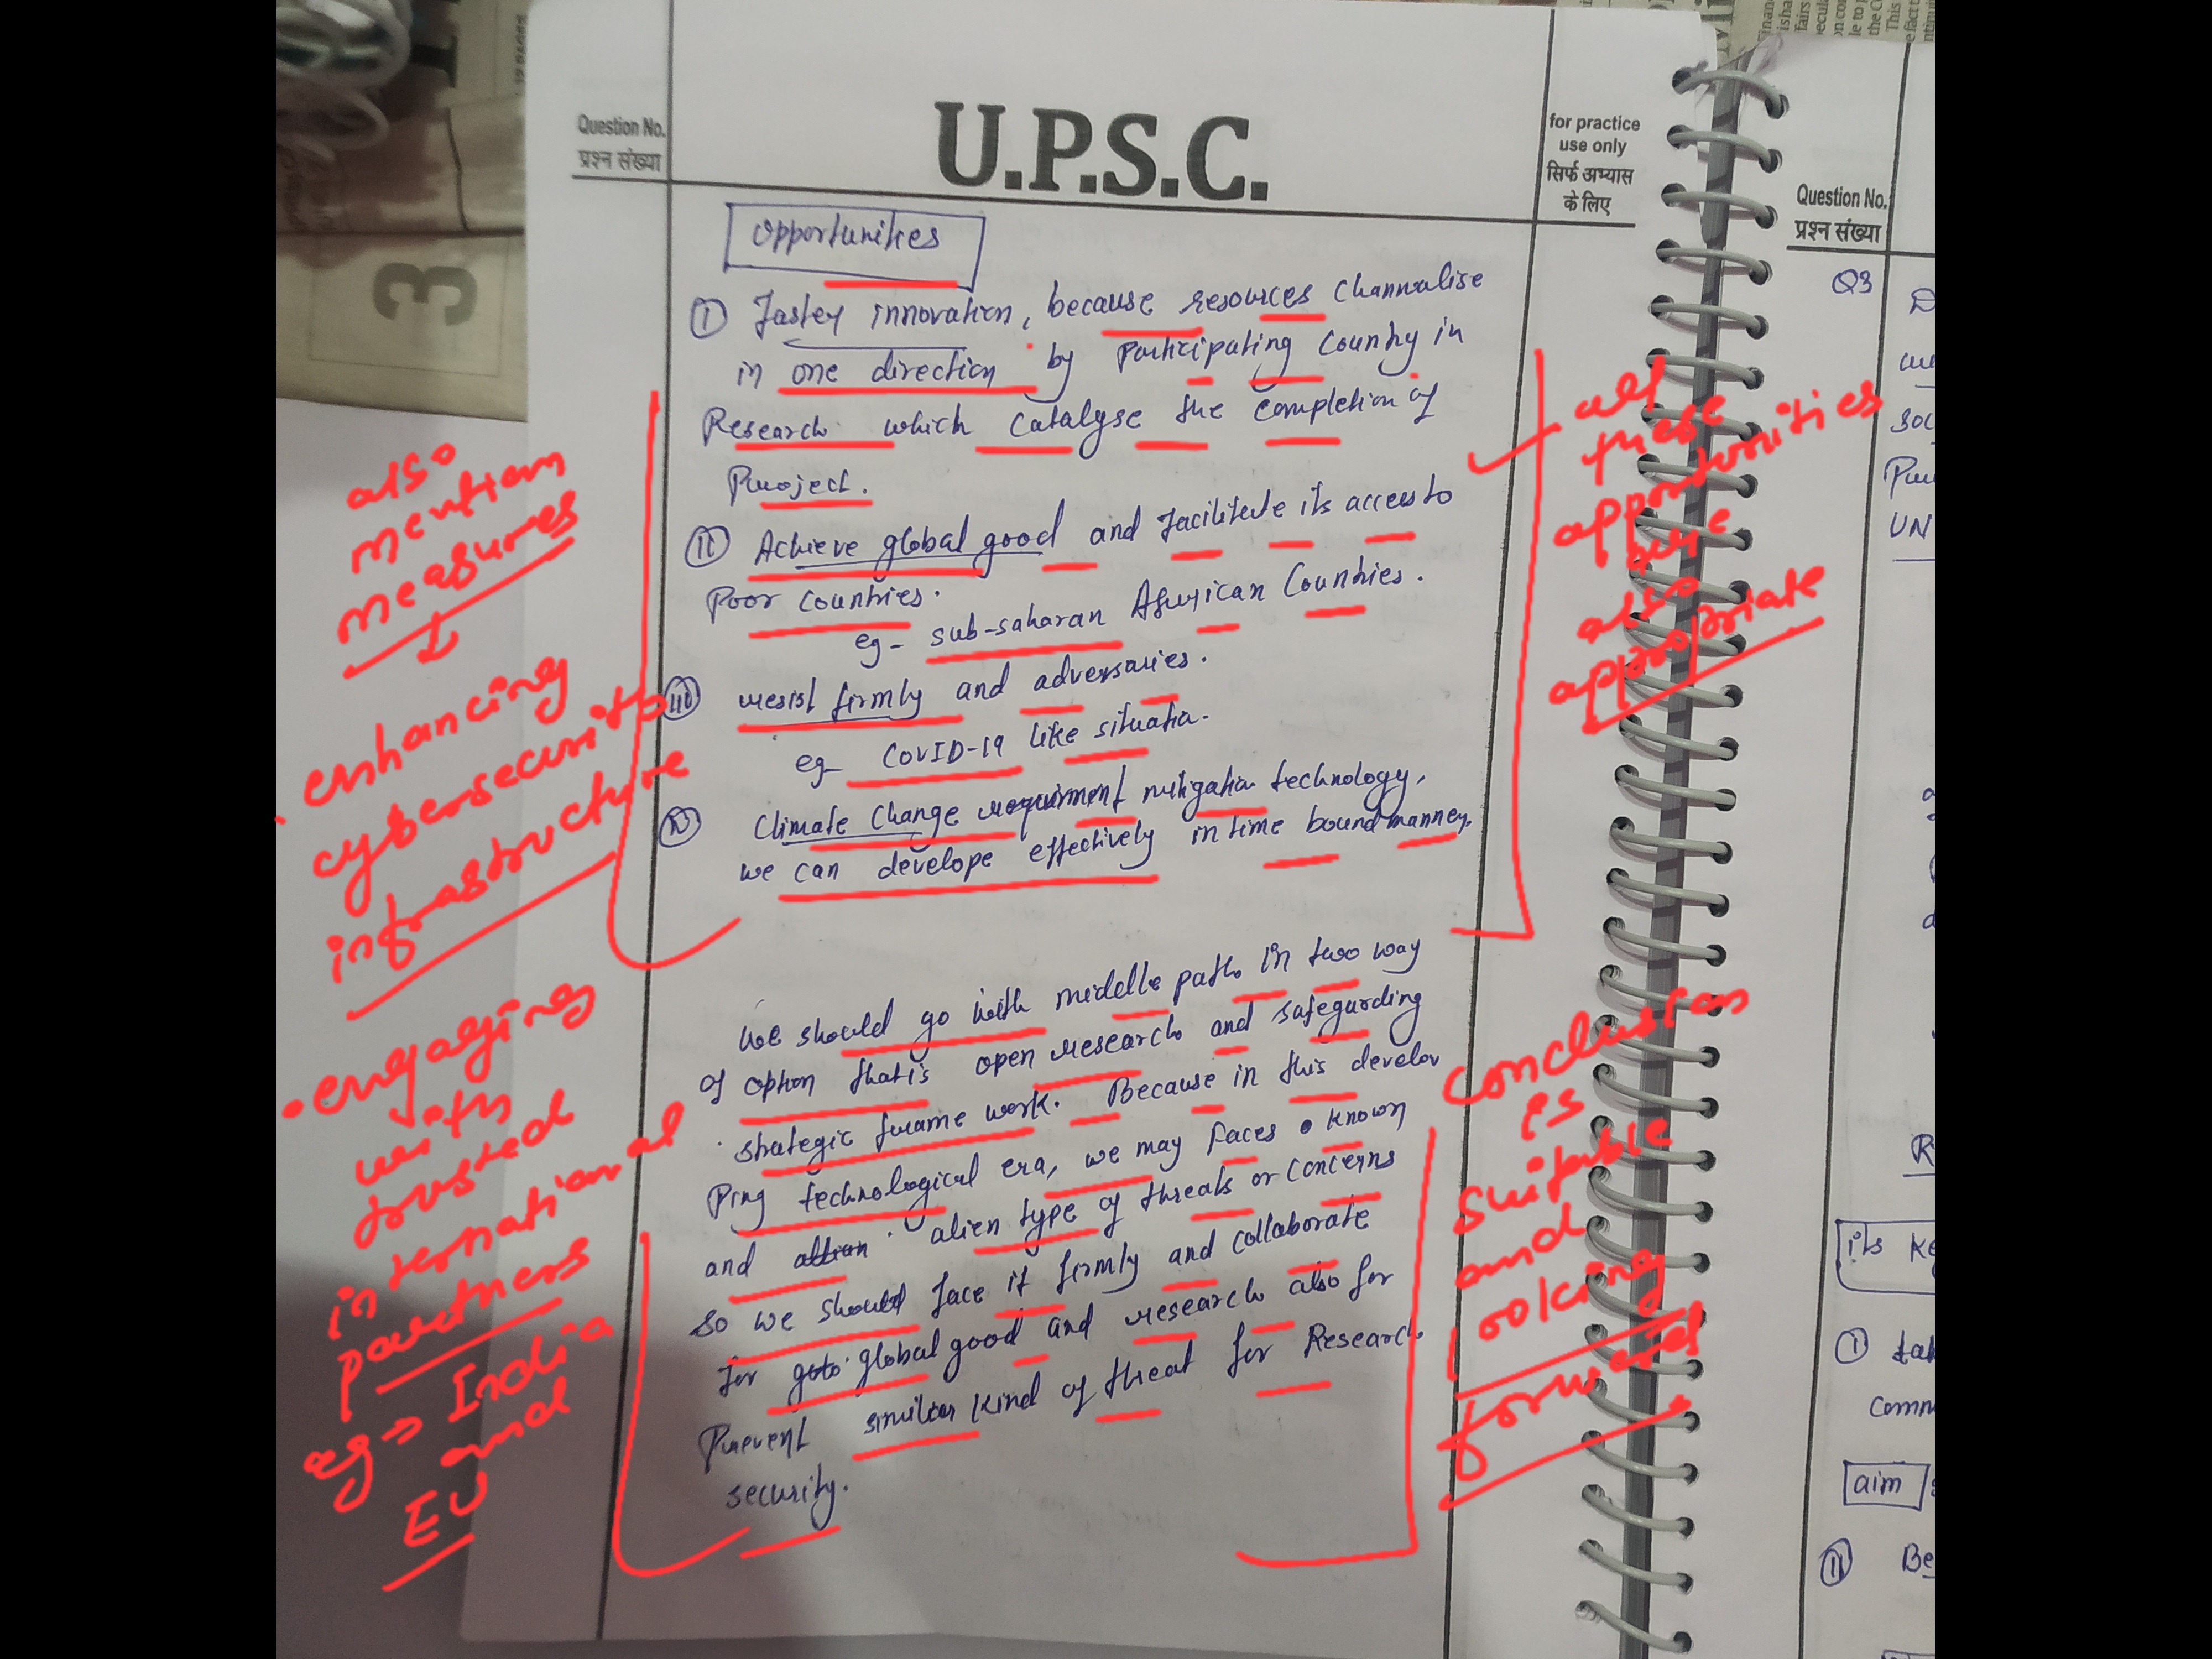 Question No.
प्रश्न संख्या
U.P.S.C.
for practice
use only
सिर्फ अभ्यास
के लिए
Opportunities
(I) Faster innovation, because resources channalise
in one direction by Participating Country in
Research which catalyse the completion of
Project.
(II) Achieve global good and facilitate its access to
Poor countries.
eg- sub-saharan African Countries.
(III) resist firmly and adversaries.
eg- COVID-19 like situatia.
(IV) Climate Change requirment mitigation technology,
we can develope effectively in time bound manner.
We should go with middle path in two way
of option that is open research and safegurding
strategic frame work. Because in this develop
Ping technological era, we may faces known
and alien type of threats or concerns
so we should face it firmly and collaborate
for global good and research also for
Prevent similar kind of threat for Research
security.
also
mention
measures
enhancing
cybersecurity
infrastructure
engaging
with
trusted
international
partners
eg → India
and
EU
all
these
opportunities
are
also
appropriate
conclusion
is
suitable
and
looking
forward
3
Question No.
प्रश्न संख्या
Q3
D
soc
UN
R
its Ke
(I) tak
Comm
aim
(II) Be